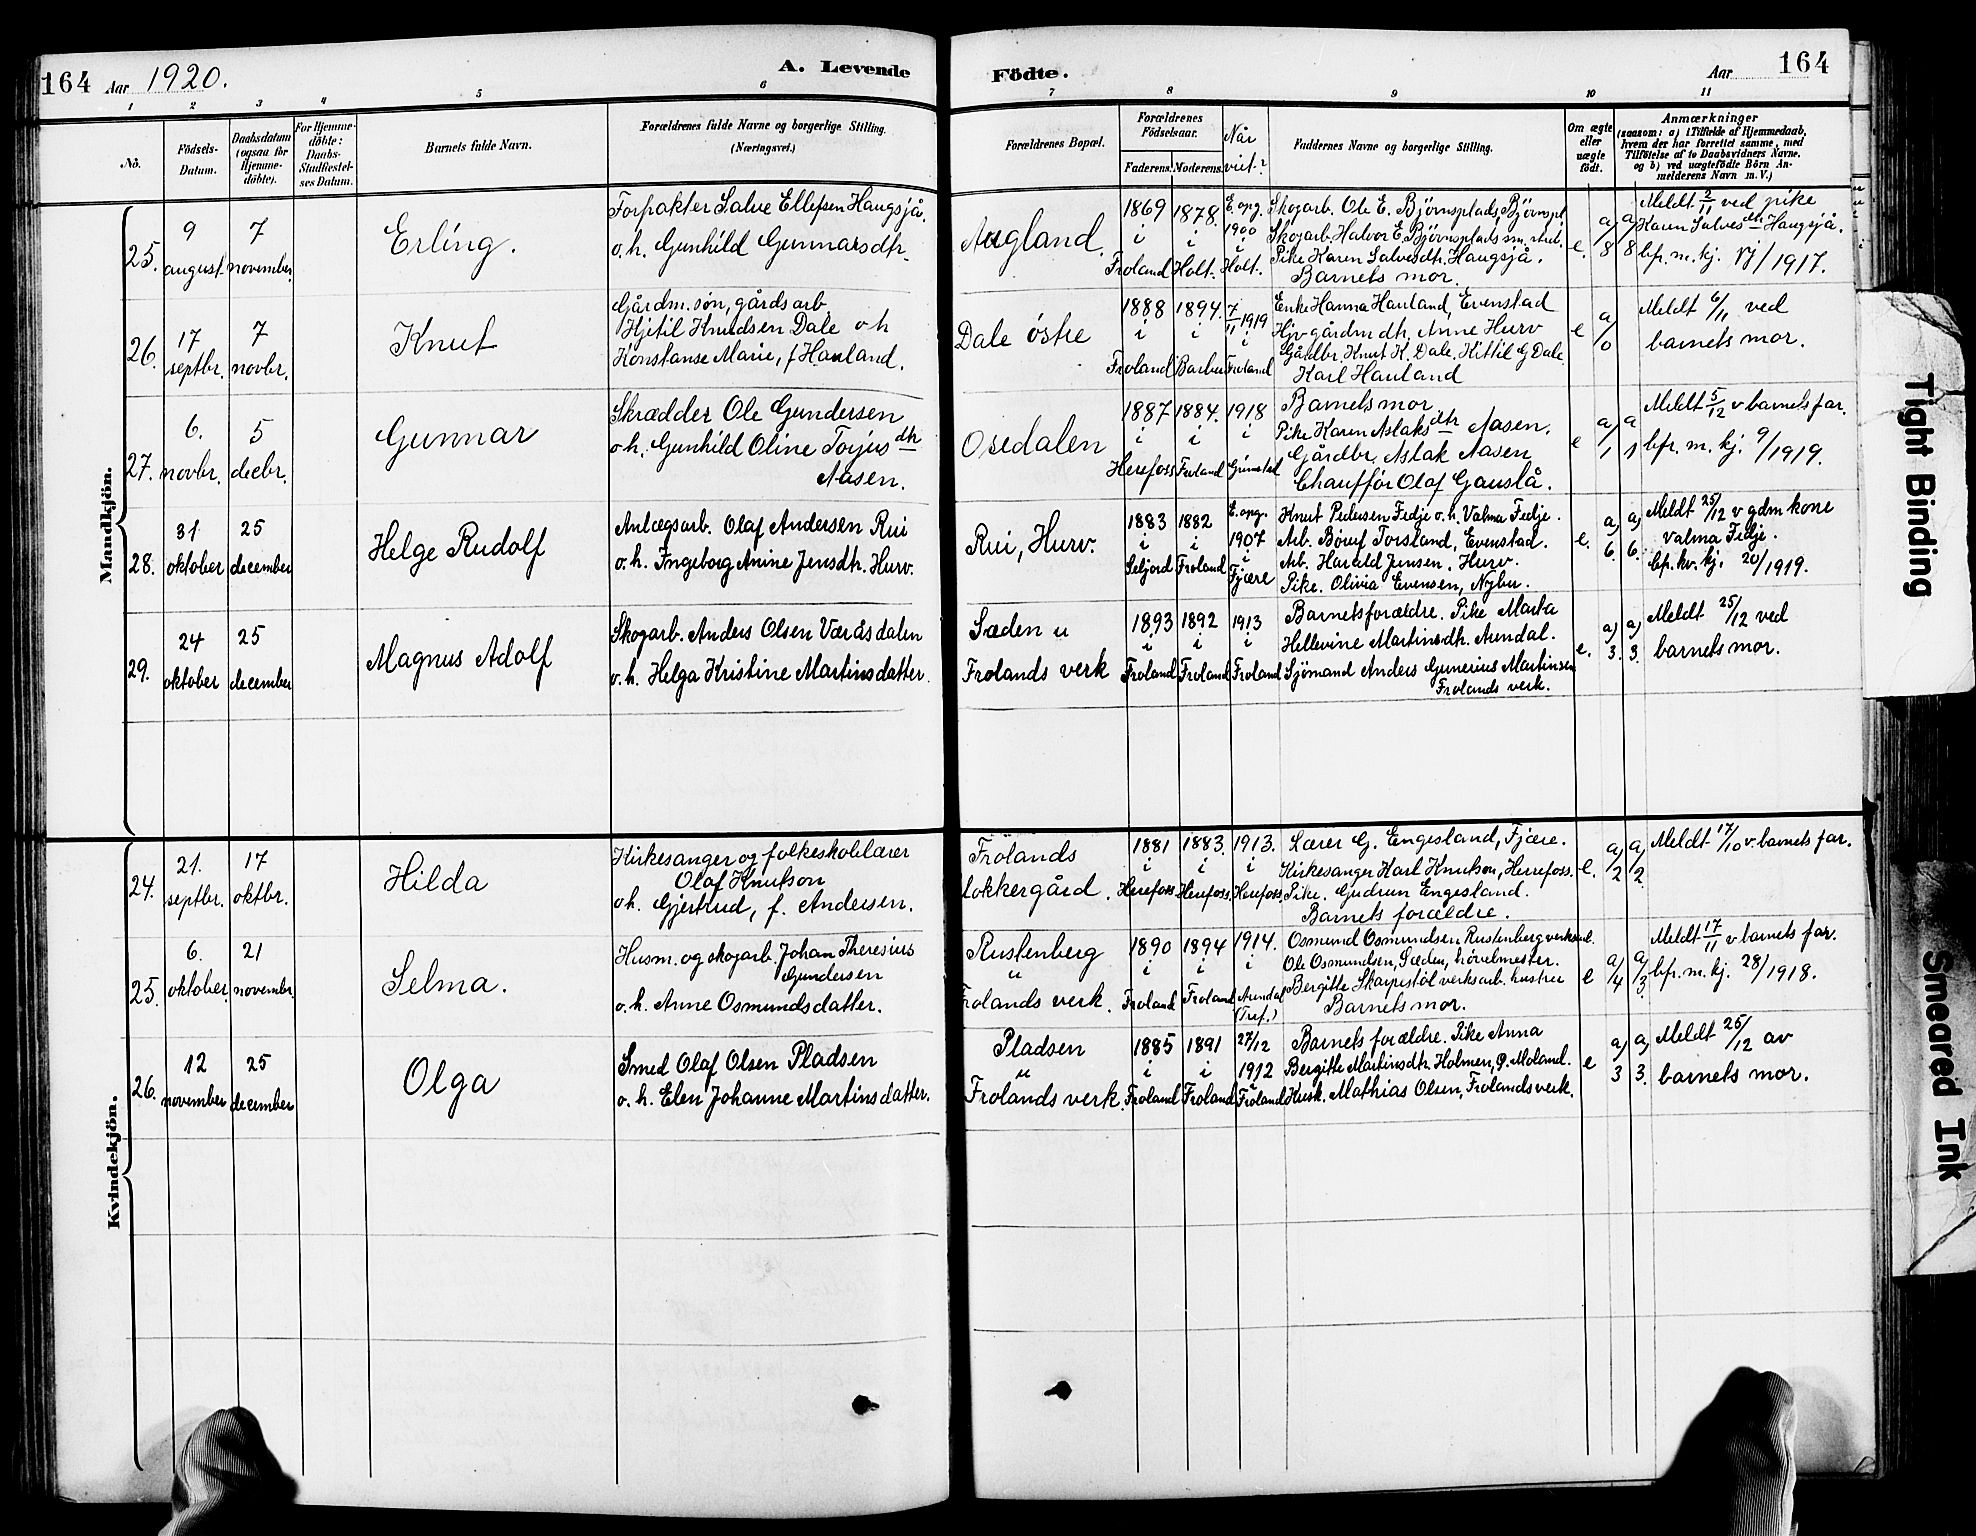 164 Aar 1920. A. Levende
Födte. Aar 164
1 2 3 4 5 6
7 8 9 10 11
No.
Födsels-
Datum.
Daabsdatum
(ogsaa for
Hjemme-
döbte).
For Hjemme-
döbte:
Daabs-
Stadfæstel-
ses Datum.
Barnets fulde Navn.
Forældrenes fulde Navne og borgerlige Stilling.
(Næringsvei.)
Forældrenes Bopæl.
Forældrenes
Födselsaar.
Faderens. Moderens.
Når
viet?
Faddernes Navne og borgerlige Stilling.
Om ægte
eller
uægte
født.
Anmærkninger
(saasom: a) i Tilfælde af Hjemmedaab,
hvem der har forrettet samme, med
Tilföielse af to Daabsvidners Navne,
og b) ved uægtefödte Börn An-
melderens Navn m. V.)
Mandkjön.
25.
9
august.
7
november
Erling.
Forpakter Salve Ellefsen Haugsjå.
o.h. Gunhild Gunnarsdtr.
Augland.
1869
i
Froland
1878.
i
Holt.
1900
i
Holt.
Skogarb. Ole E. Björnsplads, Björnspl
Skogarb. Halvor E. Björnsplads
Pike Karen Salvesdtr. Haugsjå.
Barnets mor.
e.
a/8
a/8
Meldt 2/11 ved pike
Karen Salvesdtr Haugsjå.
bfr. m. kj. /1917.
26.
17
septbr.
7
novbr.
Knut
Gårdm. søn, gårdsarb
Kjetil Knudsen Dale o h
Konstanse Marie, f Hauland.
Dale östre
1888
i
Froland
1894.
i
Barbu
7/11 1919
i
Froland
Enke Hanna Hauland, Evenstad
Hjv gårdm dtr. Anne Hurv
Gårdbr. Knut K. Dale, Kittil G Dale
Karl Hauland
e
a/0
Meldt 6/11 ved
barnets mor.
27.
6.
novbr.
5
decbr.
Gunnar
Skrædder Ole Gundersen
o.h. Gunhild Oline Torjusdtr
Aasen.
Osedalen
1887
i
Herefoss
1884.
i
Froland
1918
i
Grimstad
Barnets mor
Pike Karen Aslaksdtr Aasen.
Gårdbr. Aslak Aasen
Chauffør Olaf Gauslå.
e
a/1
a/1
Meldt 5/12 v barnets far.
bfr. m. kj. 9/1919.
28.
31
oktober
25
december
Helge Rudolf
Anlægsarb. Olaf Andersen Rui
o.h. Ingeborg Anine Jensdtr. Hurv.
Rui, Hurv.
1883
i
Seljord
1882
i
Froland
1907
i
Fjære
Knut Pedersen Fedje o.h. Valma Fedje.
Arb. Børuf Torsland, Evenstad.
Arb. Harald Jensen, Hurv.
Pike. Olivia Evensen, Nybu.
e.
a/6.
a/6.
Meldt 25/12 v gdm kone
Valma Fedje.
bfr. kv. kj. 20/1919.
29.
24
oktober
25
december
Magnus Adolf
Skogarb. Anders Olsen Væråsdalen
o.h. Helga Kristine Martinsdatter.
Sæden u
Frolands verk
1893
i
Froland
1892
i
Froland
1913
i
Froland
Barnets forældre. Pike Marta
Hellevine Martinsdtr. Arendal.
Sjömand Anders Gunerius Martinsen
Frolands verk.
e.
a/3.
a/3.
Meldt 25/12 ved
barnets mor.
Kvindekjön.
24.
21.
septbr.
17
oktbr.
Hilda
Kirkesanger og folkeskolelærer
Olaf Knutson
o h. Gjertrud, f. Andersen.
Frolands
lokkergård.
1881
i
Herefoss
1883.
i
Herefoss.
1913.
i
Herefoss.
Lærer G. Engesland, Fjære.
Kirkesanger Karl Knutson, Herrefoss.
Pike. Gudrun Engesland.
Barnets forældre.
e.
a/2
a/2
Meldt 17/10 v. barnets far.
25.
6.
oktober
21
novembr.
Selma.
Husm. og skogarb. Johan Theresius
Gundersen
o.h. Anne Osmundsdatter.
Rustenberg
u
Frolands verk.
1890
i
Froland
1894
i
Froland
1914.
i
Arendal
(Tref.)
Osmund Osmundsen Rustenberg
Ole Osmundsen, Sæden, hövelmester.
Bergitte Skarpestöl verksarb. hustru
Barnets mor.
e
a/4
a/3.
Meldt 17/11 v barnets far.
bfr. m. kj. 28/1918.
26.
12
november
25
december
Olga
Smed Olaf Olsen Pladsen
o. h. Elen Johanne Martinsdatter.
Pladsen
u
Frolands verk.
1885
i
Froland
1891
i
Froland
27/12
1912
i
Froland
Barnets forældre. Pike Anna
Bergitte Martinsdtr. Holmen, Ø. Moland.
Kusk. Mathias Olsen, Frolands verk.
e
a/3
a/3.
Meldt 25/12 av
barnets mor.
Tight Binding
Smeared Ink